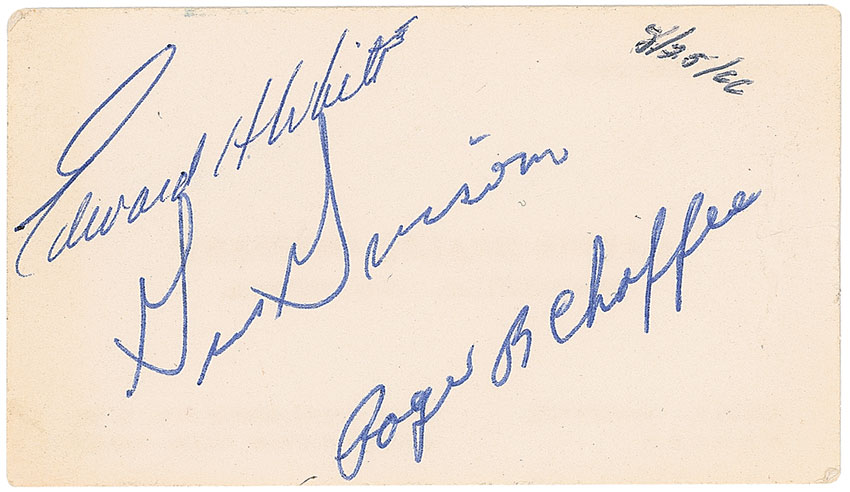 8/25/66
Edward H. White
Gus Grissom
Roger B Chaffee